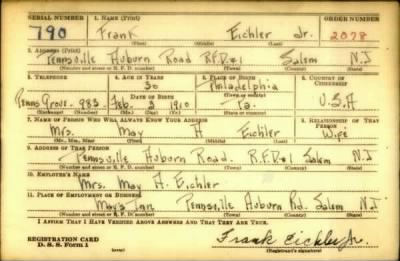 SERIAL NUMBER 1. NAME (Print) ORDER NUMBER
790 Frank Eichler Jr. 2078
(First) (Middle) (Last)
2. ADDRESS (Print)
Pennsville Auburn Road R.F.D#1 Salem N.J
(Number and street or R. F. D. number) (Town) (County) (State)
3. TELEPHONE 4. AGE IN YEARS 5. PLACE OF BIRTH 6. COUNTRY OF CITIZENSHIP
30 Philadelphia
DATE OF BIRTH (Town or county)
Penns Grove 983 Feb. 3 1910 Pa. U.S.A
(Exchange) (Number) (Mo.) (Day) (Yr.) (State or country)
7. NAME OF PERSON WHO WILL ALWAYS KNOW YOUR ADDRESS 8. RELATIONSHIP OF THAT PERSON
Mrs. May H Eichler Wife
(Mr., Mrs., Miss) (First) (Middle) (Last)
9. ADDRESS OF THAT PERSON
Pennsville Auburn Road. R.F.D#1 Salem N.J
(Number and street or R. F. D. number) (Town) (County) (State)
10. EMPLOYER'S NAME
Mrs. May H. Eichler
11. PLACE OF EMPLOYMENT OR BUSINESS
May's Inn Pennsville Auburn Rd. Salem N.J
(Number and street or R. F. D. number) (Town) (County) (State)
I AFFIRM THAT I HAVE VERIFIED ABOVE ANSWERS AND THAT THEY ARE TRUE.
REGISTRATION CARD
D. S. S. Form 1 (over) Frank Eichler Jr.
(Registrant's signature)